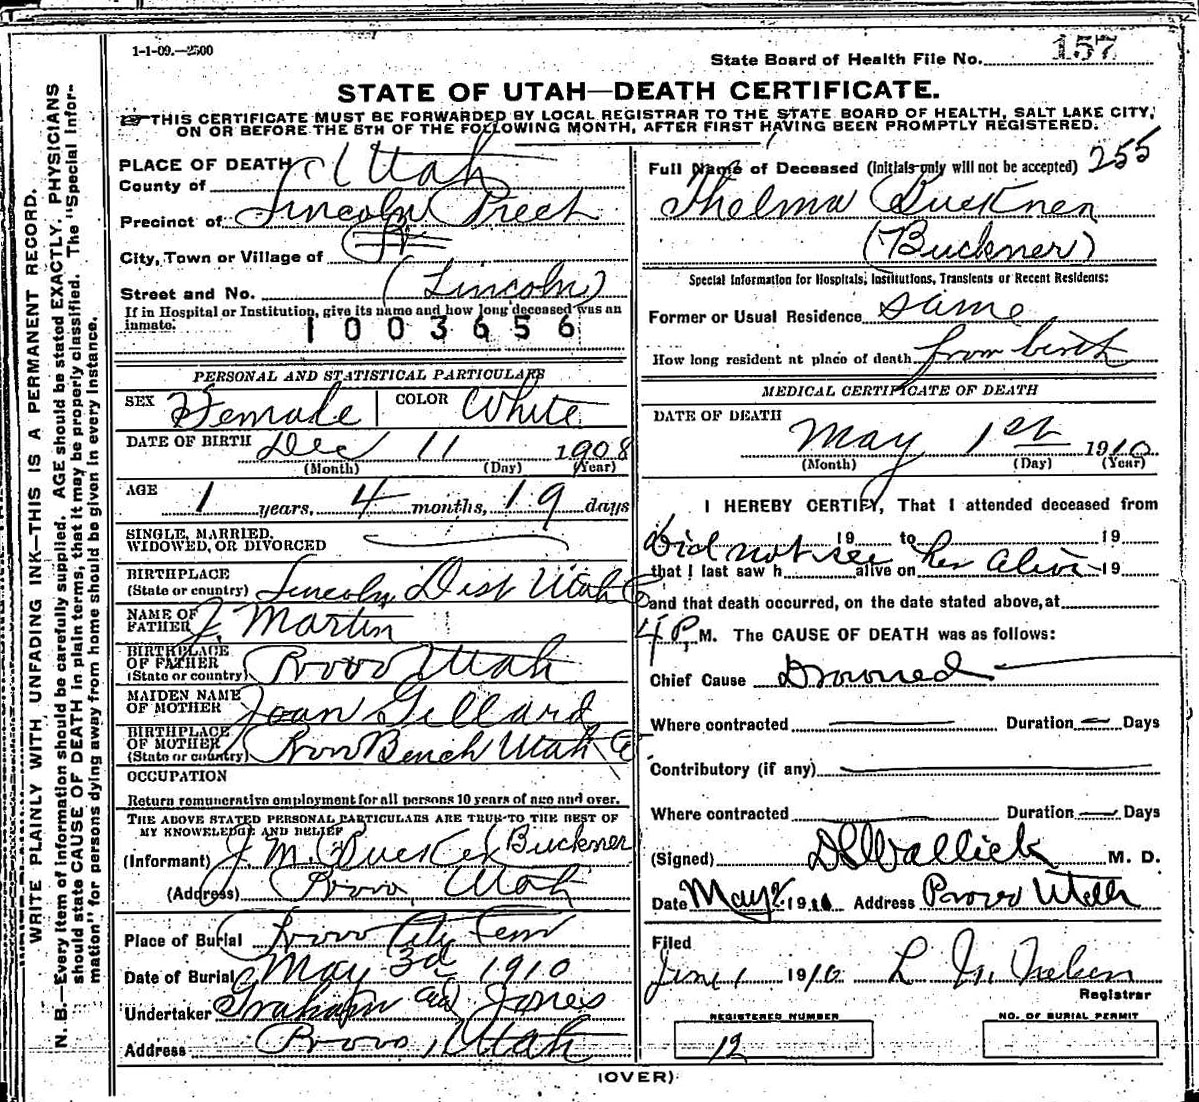 1-1-09.—2500
State Board of Health File No. 157
STATE OF UTAH—DEATH CERTIFICATE.
THIS CERTIFICATE MUST BE FORWARDED BY LOCAL REGISTRAR TO THE STATE BOARD OF HEALTH, SALT LAKE CITY,
ON OR BEFORE THE 5TH OF THE FOLLOWING MONTH, AFTER FIRST HAVING BEEN PROMPTLY REGISTERED.
WRITE PLAINLY WITH UNFADING INK—THIS IS A PERMANENT RECORD.
N. B.—Every item of information should be carefully supplied. AGE should be stated EXACTLY. PHYSICIANS
should state CAUSE OF DEATH in plain terms, that it may be properly classified. The "Special Infor-
mation" for persons dying away from home should be given in every instance.
PLACE OF DEATH
County of Utah
Precinct of Lincoln Prect
City, Town or Village of
Street and No. (Lincoln)
If in Hospital or Institution, give its name and how long deceased was an
inmate.
1003656
PERSONAL AND STATISTICAL PARTICULARS
SEX Female COLOR White
DATE OF BIRTH Dec 11 1908
(Month) (Day) (Year)
AGE 1 years, 4 months, 19 days
SINGLE, MARRIED,
WIDOWED, OR DIVORCED
BIRTHPLACE
(State or country) Lincoln Dist Utah Co
NAME OF
FATHER J. Martin
BIRTHPLACE
OF FATHER
(State or country) Provo Utah
MAIDEN NAME
OF MOTHER Joan Gillard
BIRTHPLACE
OF MOTHER
(State or country) Provo Bench Utah Co
OCCUPATION
Return remunerative employment for all persons 10 years of age and over.
THE ABOVE STATED PERSONAL PARTICULARS ARE TRUE TO THE BEST OF
MY KNOWLEDGE AND BELIEF
(Informant) J. M. Bucker Buckner
(Address) Provo, Utah
Place of Burial Provo City Cem
Date of Burial May 3d 1910
Undertaker Graham and Jones
Address Provo, Utah
255
Full Name of Deceased (initials only will not be accepted)
Thelma Bucknen
(Buckner)
Special Information for Hospitals, Institutions, Transients or Recent Residents:
Former or Usual Residence same
How long resident at place of death from birth
MEDICAL CERTIFICATE OF DEATH
DATE OF DEATH
May 1st 1910
(Month) (Day) (Year)
I HEREBY CERTIFY, That I attended deceased from
Did not see 19 to 19
that I last saw h alive on her alive 19
and that death occurred, on the date stated above, at
4 P. M. The CAUSE OF DEATH was as follows:
Chief Cause Drowned
Where contracted — Duration — Days
Contributory (if any)
Where contracted Duration — Days
(Signed) Wallick M. D.
Date May 2 1910 Address Provo Utah
Filed
June 1 1910 L
Registrar
REGISTERED NUMBER
12
NO. OF BURIAL PERMIT
(OVER)